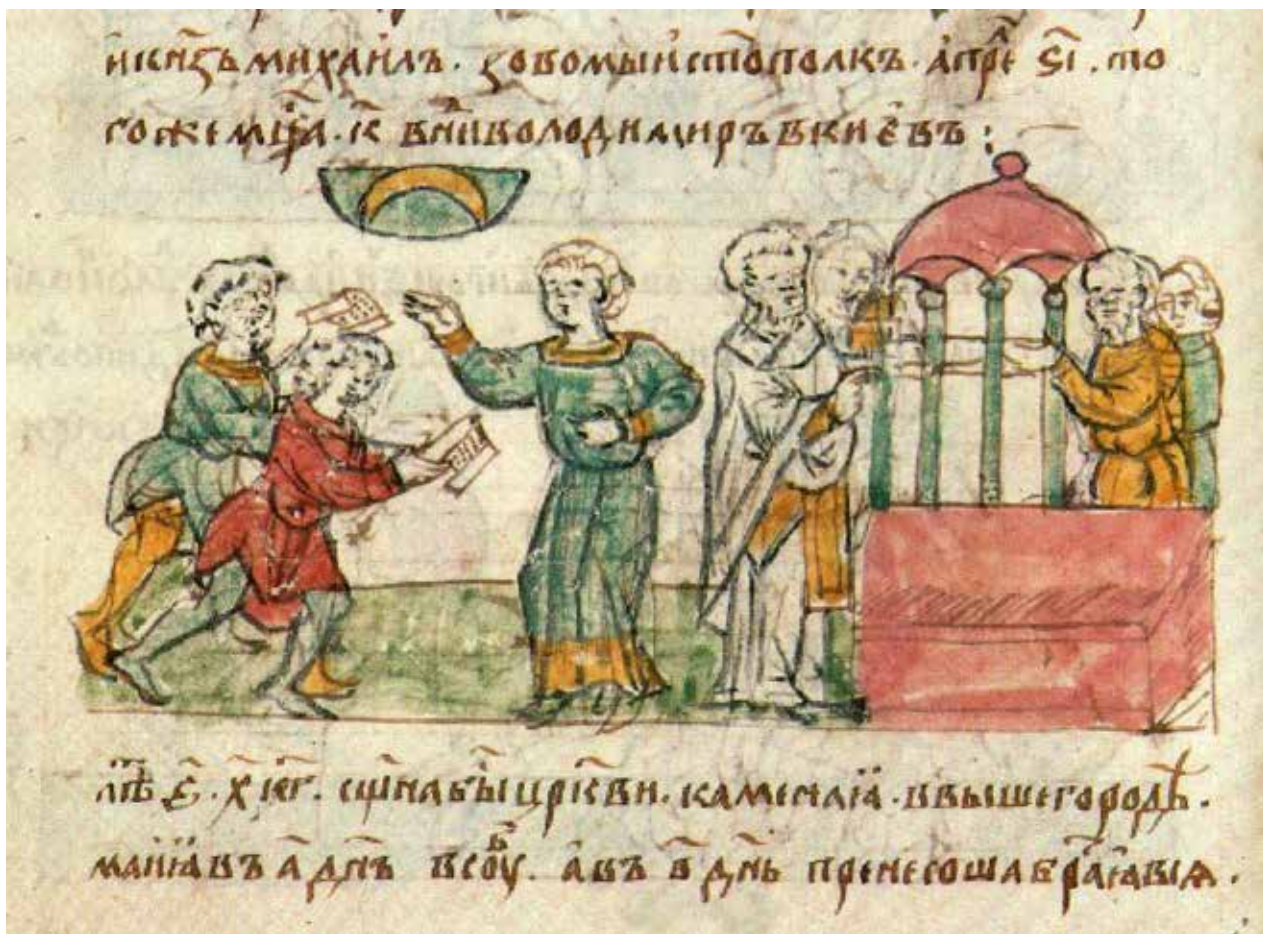 и кнѧзь михаилъ · зовомыи ст҃ополкъ · апрѣ ѕ҃і · то
гожє мц҃а · к҃ внидє володимиръ в києвъ :
лѣ҃т ҂ѕ҃ · х҃ · к҃г · сщ҃на бы҃ цр҃кви · камєнаꙗ · в вышєгородѣ ·
маиꙗ въ а҃ дн҃ь в соу҃ · а въ в҃ дн҃ь прєнєсоша бра҃